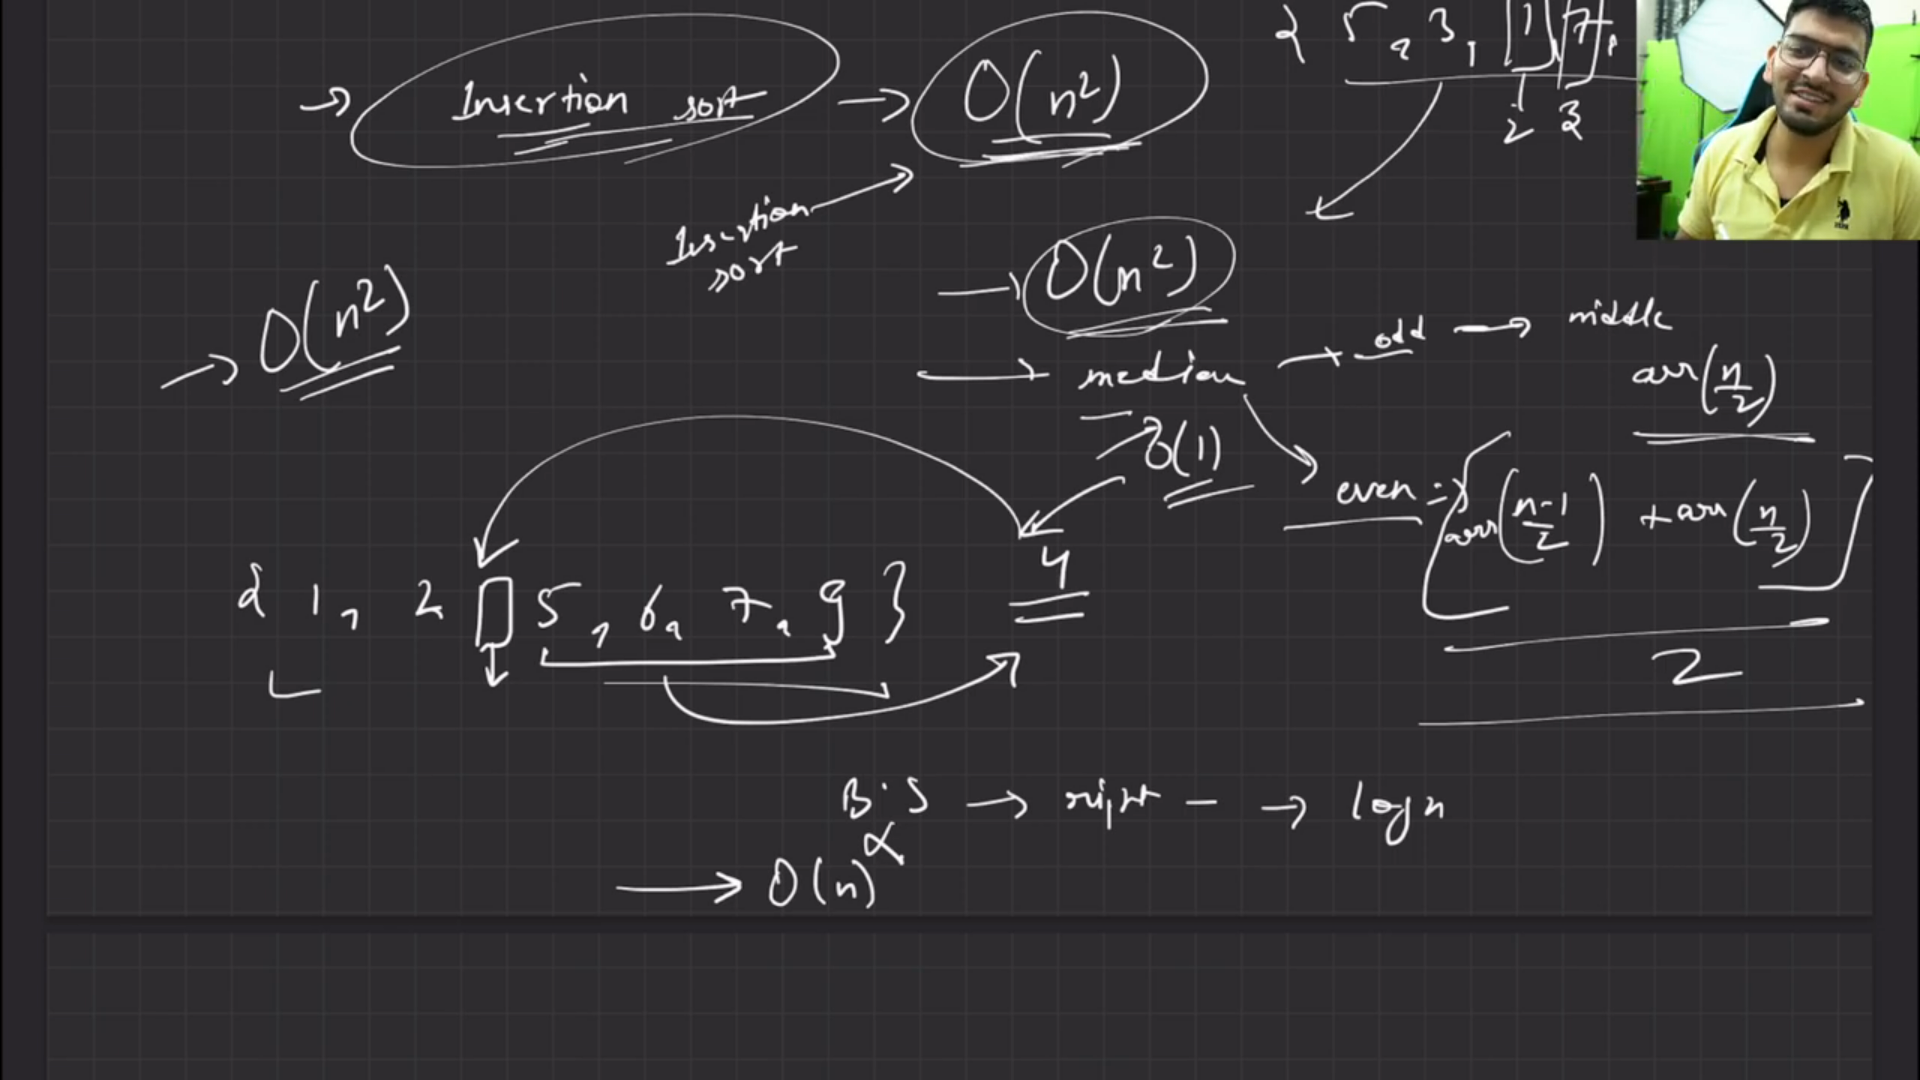 → Insertion sort → O(n²)
{ 5, 3, 1, 7,
2 3
Insertion sort
→ O(n²)
→ O(n²)
→ median → odd → middle
arr(n/2)
O(1)
even ⇒ [arr(n-1/2) + arr(n/2)]
2
4
{ 1, 2 5, 6, 7, 9 }
B.S → right → log n
→ O(n)